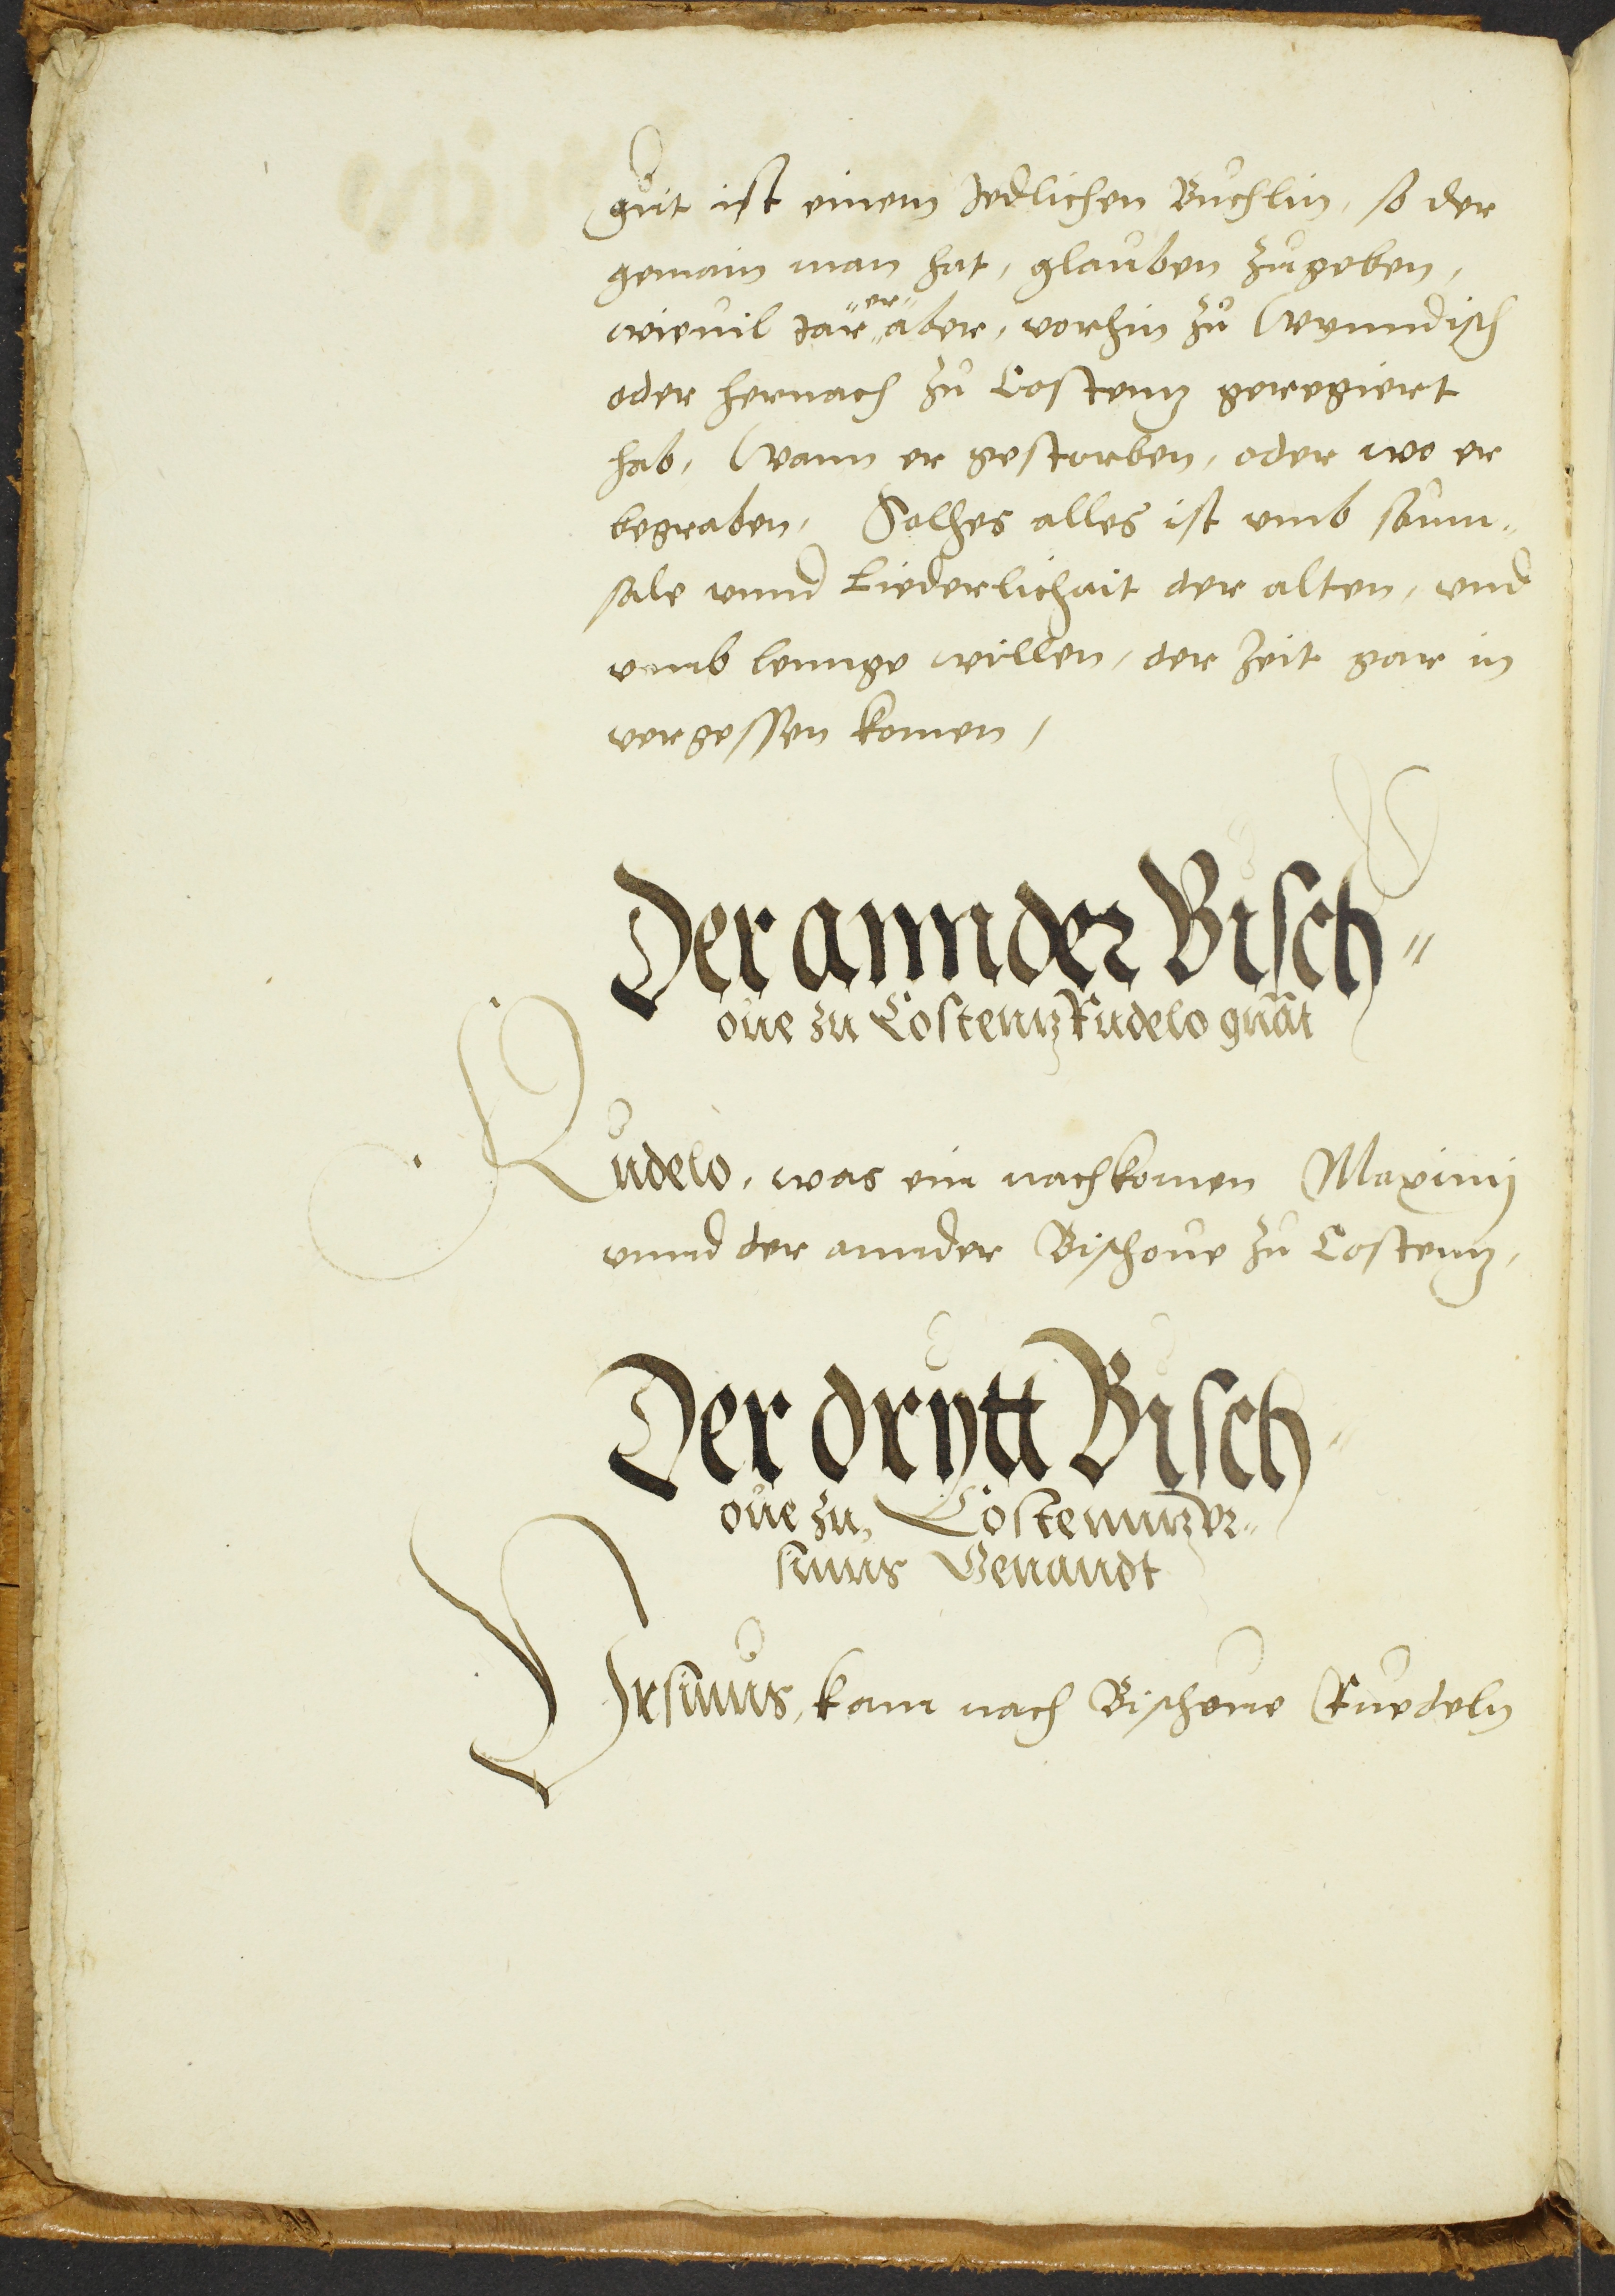 guͦt ist einem Jedlichen Buͦchlin, so der
gemain man hat, glauben zugeben,
wieuil Jar „er„ aber, vorhin zuͦ Wynndisch
oder hernach zuͦ Costenz geregiert
hab, Wann er gestorben, oder wo er
begraben, Solhes alles ist vmb somm„
sale vnnd Liederlichait der alten, vnd
vmb lennge willen, der Zeit gar in
vergessen komen,
Der annder Bisch„
oue zu Costenz Rudelo gnãt
Rudelo, was ein nachkomen Maximj
vnnd der annder Bischoue zuͦ Costenz,
Der drytt Bisch„
oue zu, Costenntz Vr„
sinus Genandt
Vrsinus, kam nach Bischoue Ruedeln